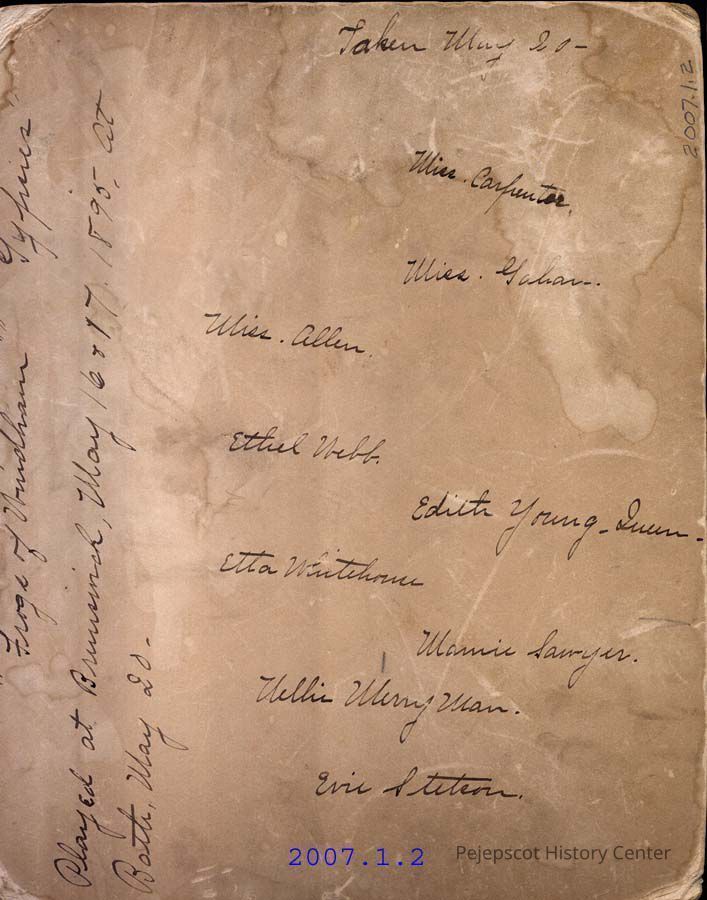 Taken May 20-
2007.1.2
Miss. Carpenter.
Miss. Gahan-.
Miss. Allen.
Ethel Webb.
Edith Young-Queen-
Etta Whitehouse
Mamie Sawyer.
Nellie Merryman.
Evie Stetson.
"Frogs of Windham" "Gypsies"
Played at Brunswick, May 16 & 17. 1895. At
Bath, May 20-
2007.1.2
Pejepscot History Center